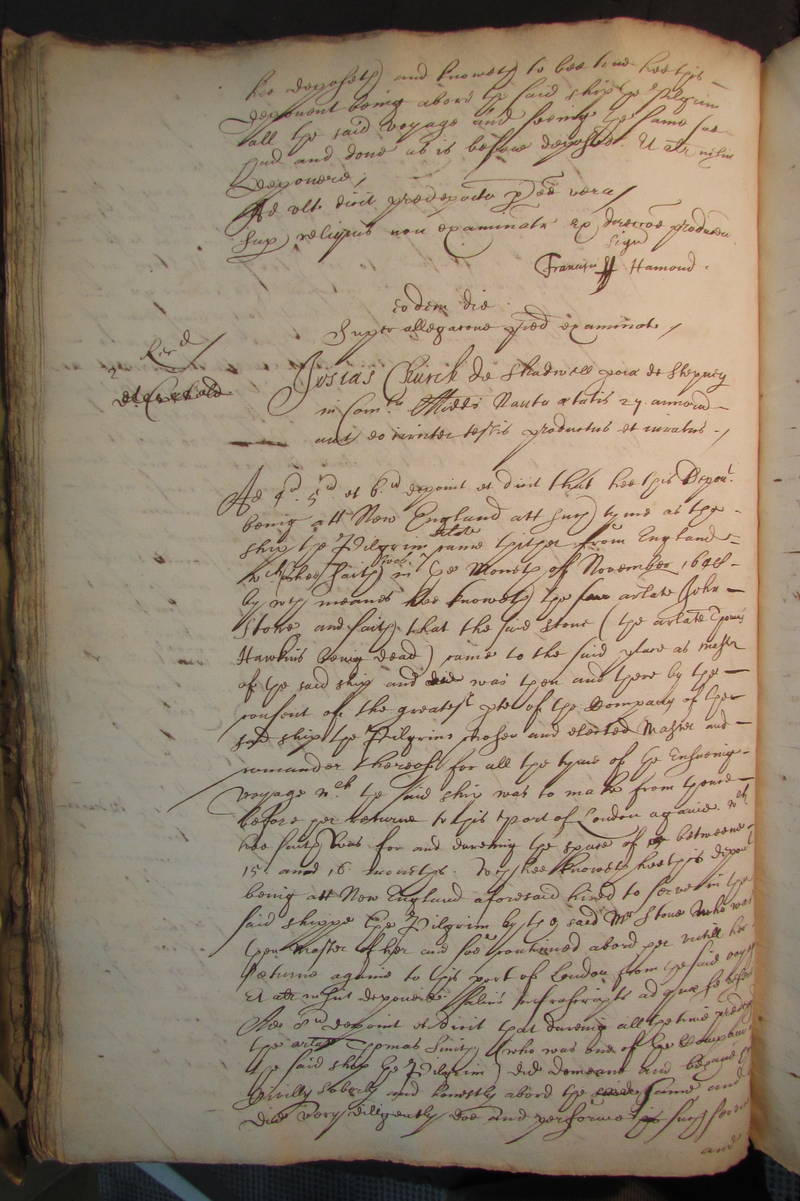 hee deposeth and knoweth to bee true hee this
deponent being abord the said ship the Pilgrim
all the said voyage and seeing the same soe
had and done as is before deposed. Et aliter nescit
deponere /
Ad ult. dicit predeposita per eum vera /
Sup reliquis non examinatr ex direccoe producen
Signu
Francisci H Hamond.
eodem die
Super allegacone pred examinat /
Josias Church de Shadwell poca de Stepney
in Com Midds Nauta ætatis 27 annorum
aut eo circiter testis productus et iuratus. /
Ad 4. 5 et 6 deponit et dicit that hee this Depont.
being att New England att such tyme as the
ship the Pilgrim came thither from England
wch (hee saith) was in the Moneth of November 164
by wch meanes hee knoweth the arlate John
Stone and saith that the said Stone (the arlate Thomas
Hawkins being dead) came to the said place as Master
of the said ship and was then and there by the
consent of the greatest pte of the Company of the
sd ship the Pilgrim chosen and elected Master and
comander thereof for all the tyme of the ensueing
voyage wch the said ship was to make from thence
before her returne to this port of London againe wch
hee saith was for and dureing the space of betweene
15 and 16 moneths. wch hee knoweth hee this depont
being att New England aforesaid hired to serve in the
said shippe the Pilgrim by the said Mr Stone who was
then Master of her and soe continued abord her untill her
returne againe to this port of London from the said voyage
Et aliter nescit deponere
Ad 8 deponit et dicit that dureing all the time
the arlate Thomas Smith (who was one of the Company
the said ship the Pilgrim) did demeane and behave
civilly soberly and honestly abord the same and
did very diligently doe and performe such service
and